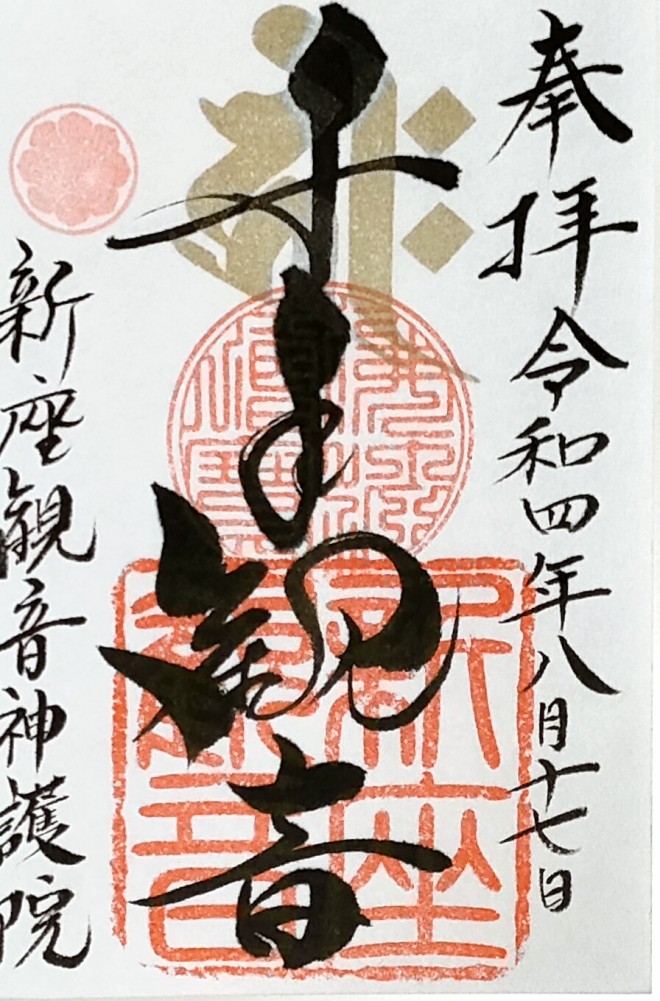 奉拝 令和四年八月十七日
千手観音
新座観音神護院
新座観音